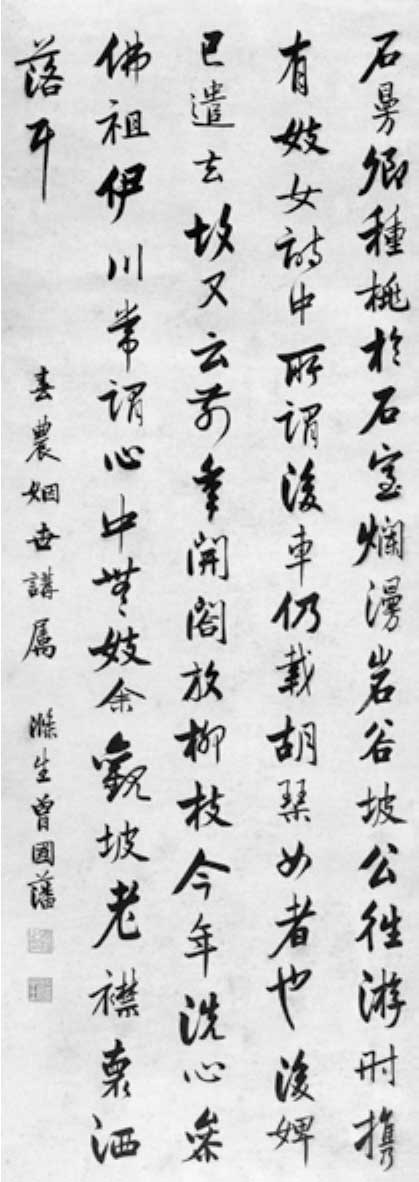 石曼卿種桃於石室爛漫岩谷坡公往游時携
有妓女詩中所謂後車仍載胡琴女者也後婢
已遣去故又云前年開閤放柳枝今年洗心參
佛祖伊川常謂心中無妓余觀坡老襟裏洒
落耳
春農姻世講屬 滌生曾國藩